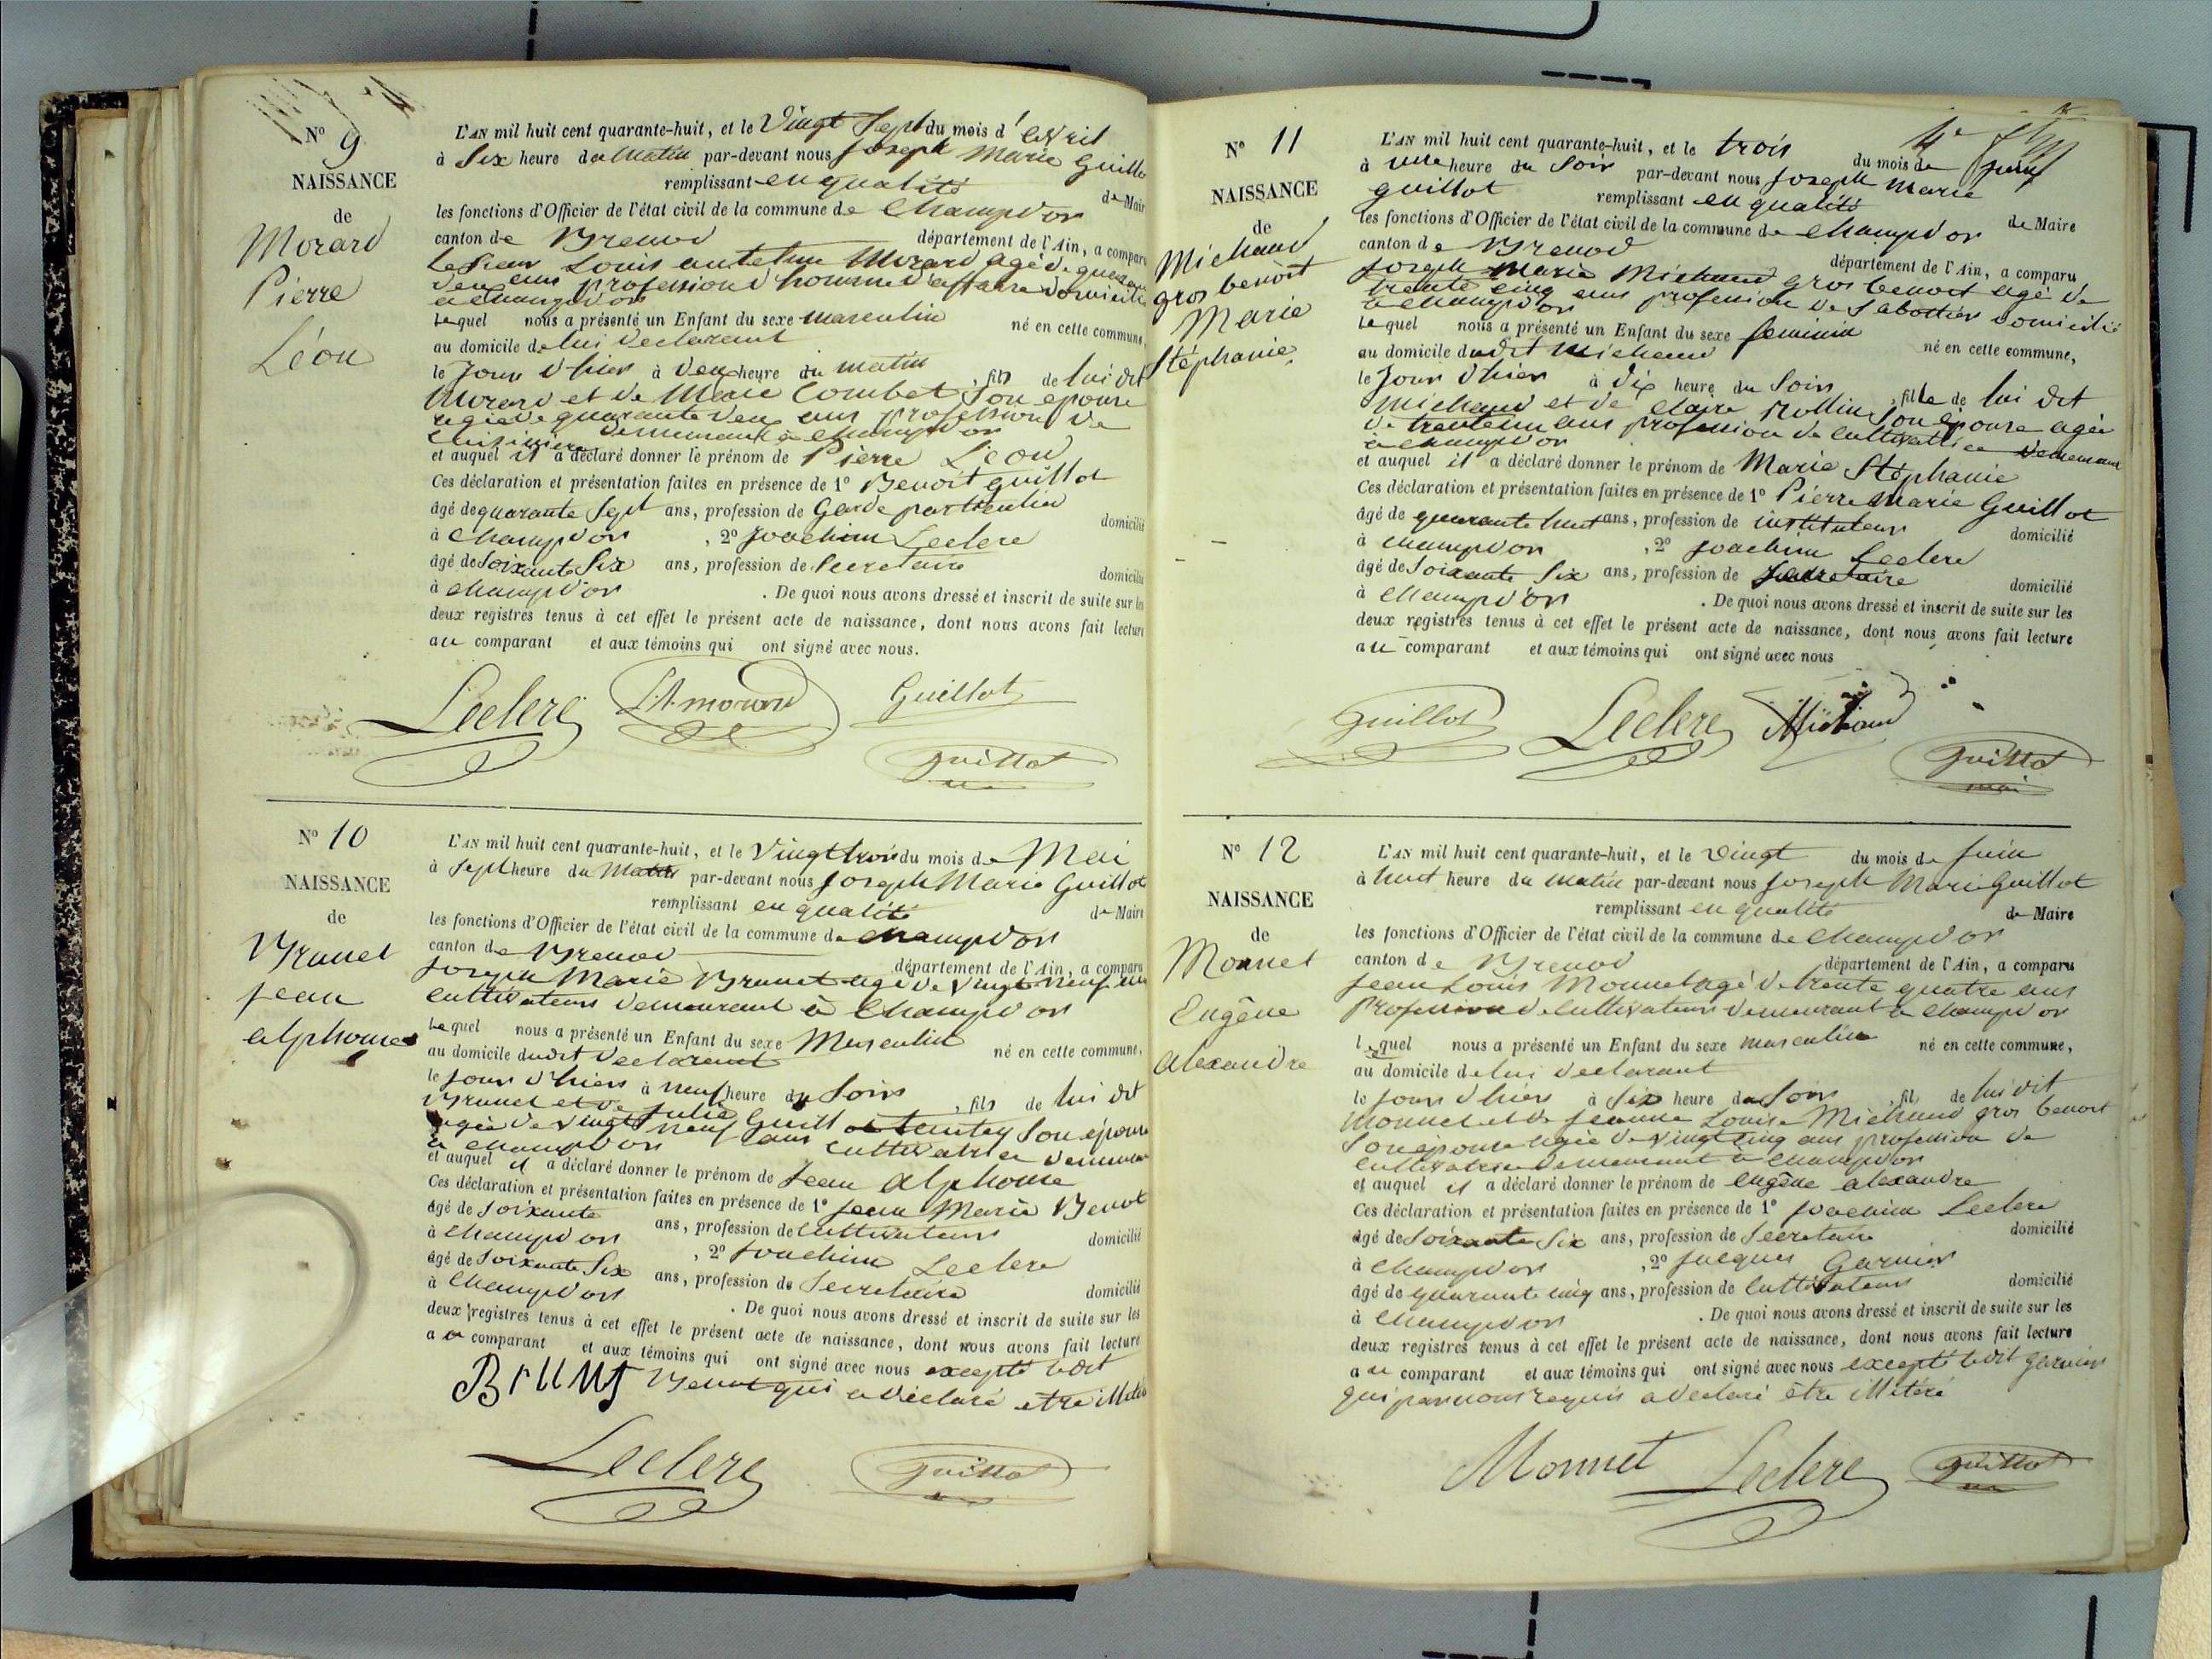 Nº 9
NAISSANCE
de
Morard
Pierre
Léon
L'AN mil huit cent quarante-huit, et le Vingt Sept du mois d'avril
à Six heure du matin par-devant nous Joseph Marie Guillo
remplissant en qualité de Mair
les fonctions d'Officier de l'état civil de la commune de Champdor
canton de Brenod département de l'Ain, a comparu
Le Sieur Louis antelme Morard agé de quarante
deux ans profession d'homme d'affaire domicilié
a Champdor
Lequel nous a présenté un Enfant du sexe masculin né en cette commune,
au domicile de lui declarant
le Jour d'hier à deux heure du matin, fils de lui dit
Morard et de Marie Combet Son épouse
agée de quarante deux ans profession de
cuisinière demeurant à Champdor
et auquel il a déclaré donner le prénom de Pierre Léon
Ces déclaration et présentation faites en présence de 1º Benoit Guillot
âgé de quarante Sept ans, profession de Garde particulier domicilié
à Champdor, 2º Joachim Leclere
âgé de Soixante Six ans, profession de Secretaire domicilié
à Champdor. De quoi nous avons dressé et inscrit de suite sur les
deux registres tenus à cet effet le présent acte de naissance, dont nous avons fait lecture
au comparant et aux témoins qui ont signé avec nous.
Leclere LA morard Guillot
Guillot
Nº 10
NAISSANCE
de
Brunet
Jean
alphonse
L'AN mil huit cent quarante-huit, et le Vingt trois du mois de Mai
à Sept heure du Matin par-devant nous Joseph Marie Guillot
remplissant en qualité de Maire
les fonctions d'Officier de l'état civil de la commune de Champdor
canton de Brenod département de l'Ain, a comparu
Joseph Marie Brunet agé de Vingt neuf ans
cultivateur demeurant à Champdor
Lequel nous a présenté un Enfant du sexe Masculin né en cette commune,
au domicile dudit declarant
le Jour d'hier à neuf heure du Soir, fils de lui dit
Brunet et de Julie Guillot Son épouse
agée de Vingt neuf ans cultivatrice demeurant
à Champdor
et auquel il a déclaré donner le prénom de Jean Alphonse
Ces déclaration et présentation faites en présence de 1º Jean Marie Benot
âgé de Soixante ans, profession de Cultivateur domicilié
à Champdor, 2º Joachim Leclere
âgé de Soixante Six ans, profession de Secretaire domicilié
à Champdor. De quoi nous avons dressé et inscrit de suite sur les
deux registres tenus à cet effet le présent acte de naissance, dont nous avons fait lecture
au comparant et aux témoins qui ont signé avec nous excepté ledit
Benot qui a déclaré etre
Leclere Guillot
Nº 11
NAISSANCE
de
Michaud
gros benoit
Marie
Stéphanie
L'AN mil huit cent quarante-huit, et le trois du mois de Juin
à une heure du Soir par-devant nous Joseph Marie
guillot remplissant en qualité de Maire
les fonctions d'Officier de l'état civil de la commune de Champdor
canton de Brenod département de l'Ain, a comparu
Joseph Marie Michaud gros benoit agé de
trente cinq ans profession de Sabottier domicilié
à Champdor
Lequel nous a présenté un Enfant du sexe feminin né en cette commune,
au domicile dudit Michaud
le Jour d'hier à dix heure du Soir, fille de lui dit
Michaud et de Claire Rollin Son épouse agée
de trente un ans profession de cultivatrice demeurant
à Champdor
et auquel il a déclaré donner le prénom de Marie Stéphanie
Ces déclaration et présentation faites en présence de 1º Pierre Marie Guillot
âgé de quarante huit ans, profession de instituteur domicilié
à Champdor, 2º Joachim Leclere
âgé de Soixante Six ans, profession de Secretaire domicilié
à Champdor. De quoi nous avons dressé et inscrit de suite sur les
deux registres tenus à cet effet le présent acte de naissance, dont nous avons fait lecture
au comparant et aux témoins qui ont signé avec nous
Guillot Leclere Michaud
Guillot
Nº 12
NAISSANCE
de
Monnet
Eugêne
Alexandre
L'AN mil huit cent quarante-huit, et le Vingt du mois de Juin
à huit heure du matin par-devant nous Joseph Marie Guillot
remplissant en qualité de Maire
les fonctions d'Officier de l'état civil de la commune de Champdor
canton de Brenod département de l'Ain, a comparu
Jean Louis Monnet agé de trente quatre ans
Profession de Cultivateur demeurant à Champdor
lequel nous a présenté un Enfant du sexe masculin né en cette commune,
au domicile de lui declarant
le Jour d'hier à Six heure du Soir, fil de lui dit
Monnet et de Jeanne Louise Michaud gros benoit
Son épouse agée de vingt cinq ans profession de
cultivatrice demeurant à Champdor
et auquel il a déclaré donner le prénom de Eugêne alexandre
Ces déclaration et présentation faites en présence de 1º Joachim Leclere
âgé de Soixante Six ans, profession de Secretaire domicilié
à Champdor, 2º Jacques Garnier
âgé de quarante cinq ans, profession de Cultivateur domicilié
à Champdor. De quoi nous avons dressé et inscrit de suite sur les
deux registres tenus à cet effet le présent acte de naissance, dont nous avons fait lecture
au comparant et aux témoins qui ont signé avec nous excepté ledit garnier
qui par nous requis a declaré être illitéré
Monnet Leclere Guillot